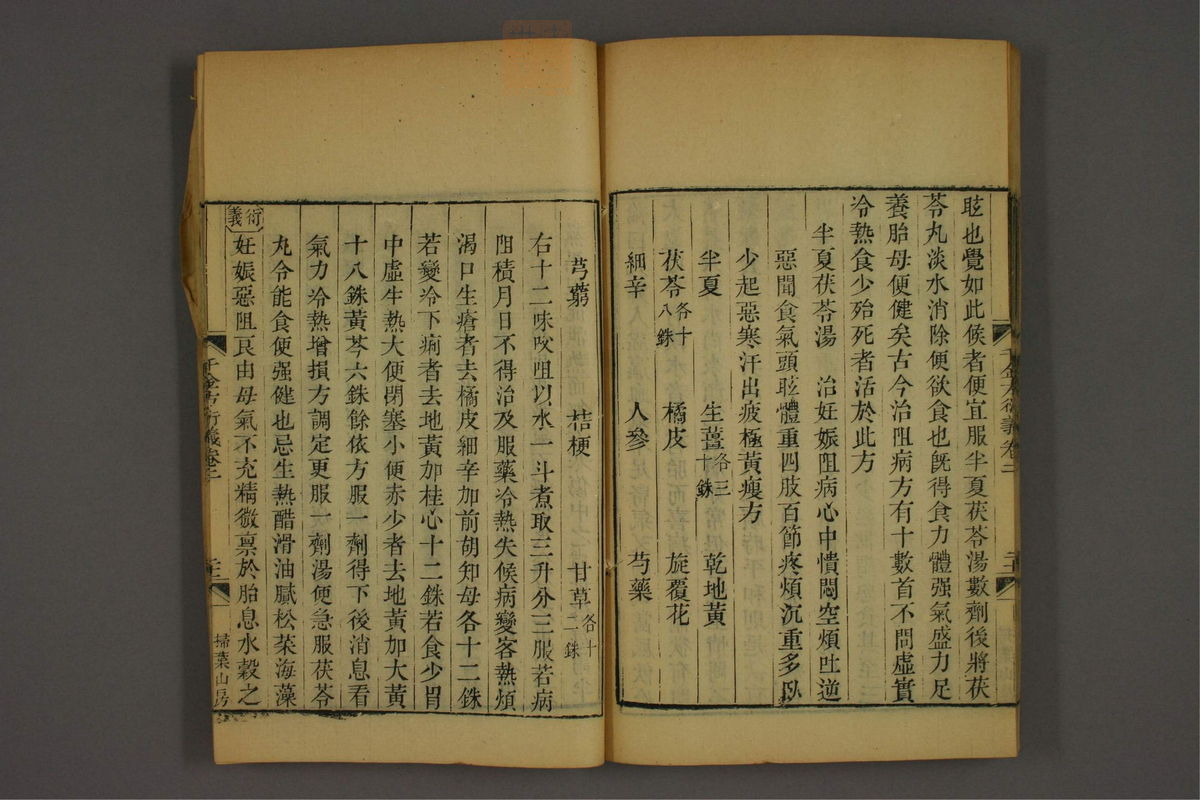 眩也覺如此候者便宜服半夏茯苓湯數劑後將茯
苓丸淡水消除便欲食也旣得食力體强氣盛力足
養胎母便健矣古今治阻病方有十數首不問虛實
冷熱食少殆死者活於此方
半夏茯苓湯　治妊娠阻病心中憒悶空煩吐逆
惡聞食氣頭眩體重四肢百節疼煩沉重多臥
少起惡寒汗出疲極黃瘦方
半夏　生薑各三十銖　乾地黃
茯苓各十八銖　橘皮　旋覆花
細辛　人參　芍藥
千金方衍義卷二
芎藭　桔梗　甘草各十二銖
右十二味㕮咀以水一斗煮取三升分三服若病
阻積月日不得治及服藥冷熱失候病變客熱煩
渴口生瘡者去橘皮細辛加前胡知母各十二銖
若變冷下痢者去地黃加桂心十二銖若食少胃
中虛生熱大便閉塞小便赤少者去地黃加大黃
十八銖黃芩六銖餘依方服一劑得下後消息看
氣力冷熱增損方調定更服一劑湯便急服茯苓
丸令能食便强健也忌生熱醋滑油膩菘菜海藻
衍義
妊娠惡阻良由母氣不充精微禀於胎息水穀之
千金方衍義卷二
掃葉山房